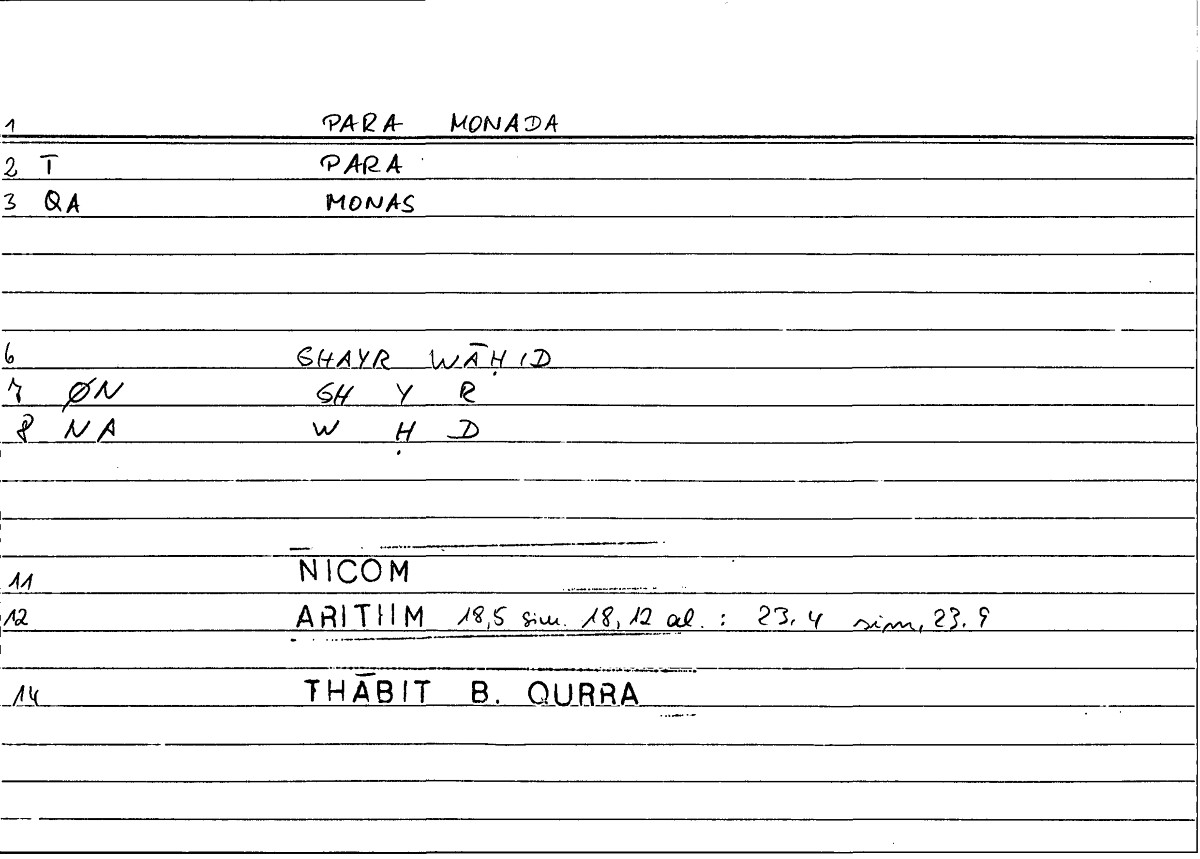 1 PARA MONADA
2 T PARA
3 QA MONAS
6 GHAYR WĀḤID
7 ØN GH Y R
8 NA W Ḥ D
11 NICOM
12 ARITHM 18,5 sim. 18,12 al. : 23.4 sim, 23.9
14 THĀBIT B. QURRA